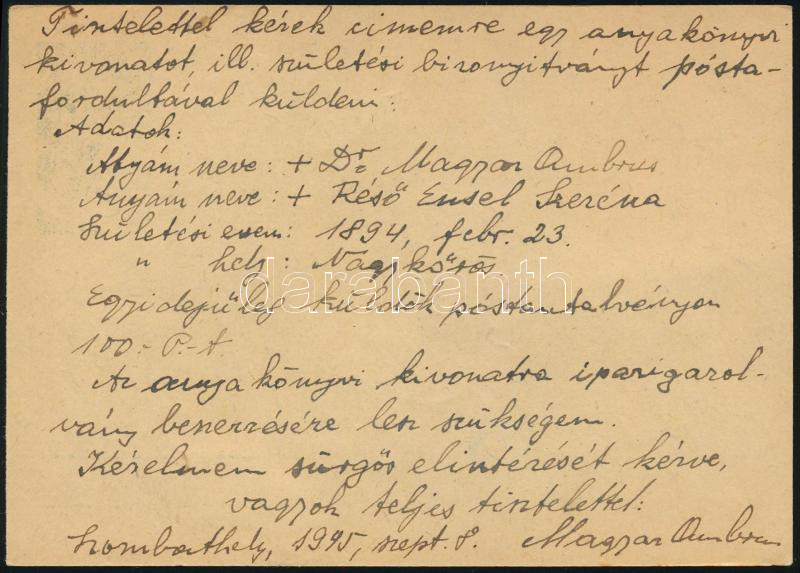 Tisztelettel kérek cimemre egy anyakönyvi
kivonatot, ill. születési bizonyitványt pósta-
fordultával küldeni.
Adatok:
Atyám neve: + Dr. Magyar Ambrus
Anyám neve: + Réső Ensel Szeréna
Születési evem: 1894, febr. 23.
" hely: Nagykőrös
Egyidejüleg küldök póstautalványon
100.- P.-t.
Az anyakönyvi kivonatra iparigazol-
vány beszerzésére lesz szükségem.
Kérelmem sürgös elintézését kérve,
vagyok teljes tisztelettel:
Szombathely, 1945, szept. 8. Magyar Ambrus
darabanth